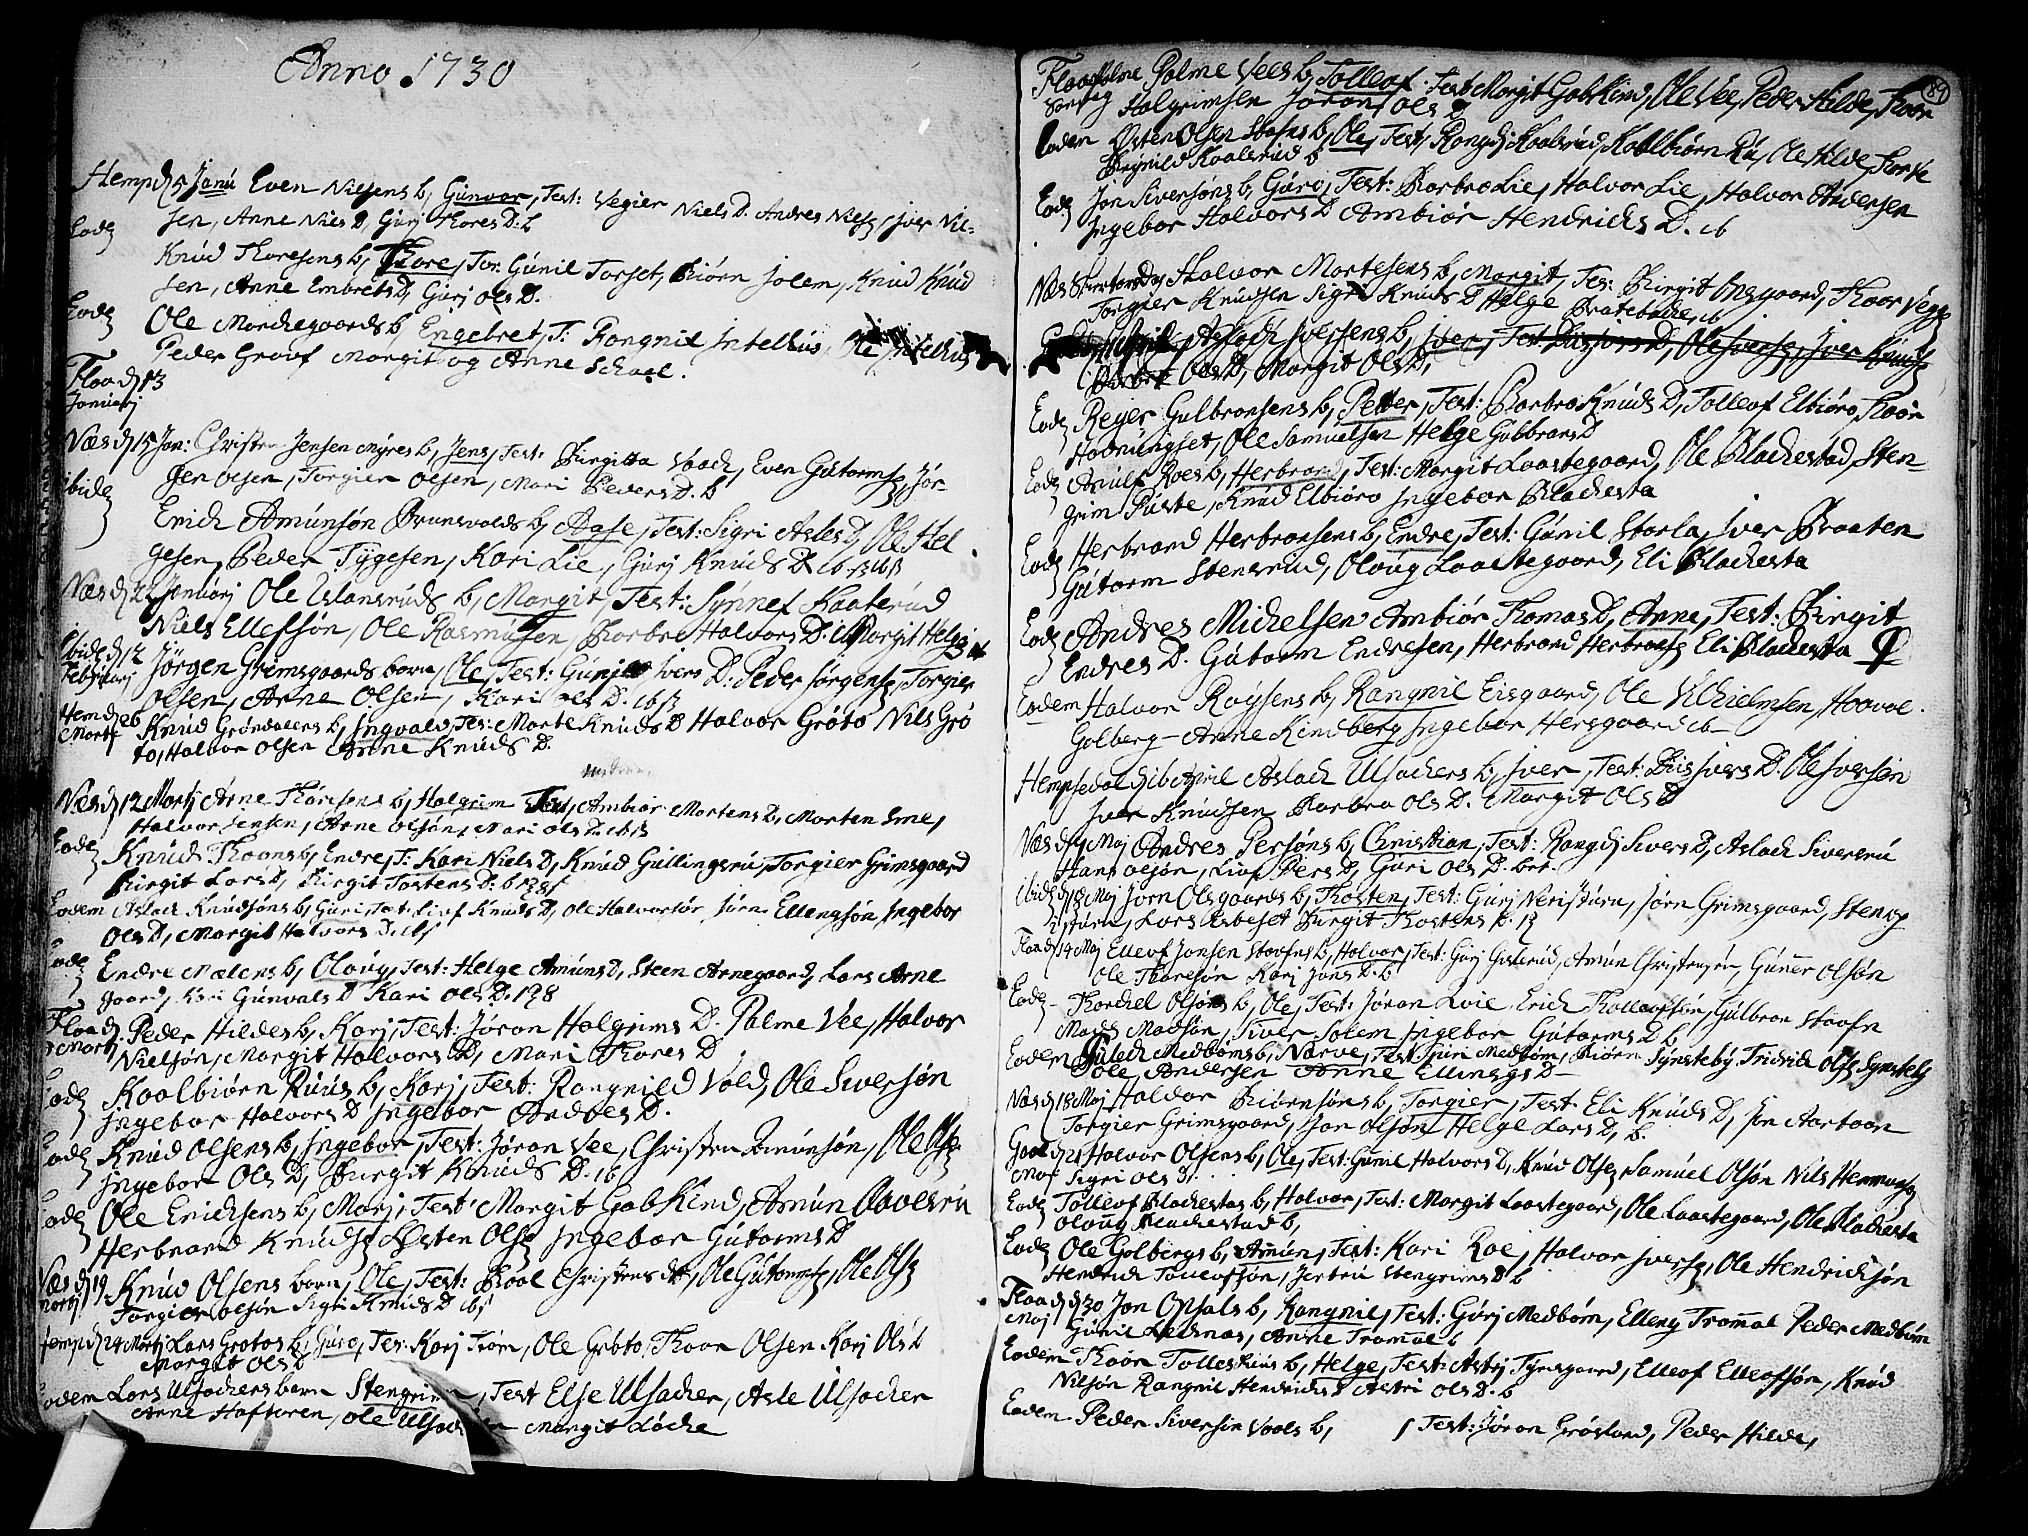 Anno 1730
Hemp d 5 Janú Even Nielsens b, Gunvor, Test: Vegier Niels D. Andres Niels Iver Niel-
sen, Anne Niels D, Gúrj Thores D: b
Eod Knúd Thoresens b, Thore, Tes: Gúnil Torset, Biørn Solem, Knúd Knúd
sen, Anne Embrets D, Gúrj Ols D.
Eod Ole Morchegaards b, Engebret, T: Rongnil Intelhús, Ole Intelhús
Peder Graúf Margit og Anne Schael.
Flaa d 13
Januarj
Næs d 15 Jan: Christen Jensen Myres b, Jens, Test: Birgitta Vaach, Even Gútorms, Jør-
gen Olsen, Torgier Olsen, Mari Peders D. b
Ibid Erich Amúnsøn Brunsvolds b, Aase, Test: Sigri Asles D, Ole Hel
gesen, Peder Tygesen, Kari Lie, Gúrj Knúds D
Næs d 22 Janúarj Ole Uslansrúds b, Margit, Test: Synnef Kaaterúd
Niels Ellefsøn, Ole Rasmúsen, Barbro Halvors D: Margit Helg
Ibid d 12 Jørgen Grimsgaards barn, Ole, Test: Gúnj Ivers D: Peder Jørgens, Torgier
Februarj Olsen, Anne Olsen, Kari Ols D.
Hem d 26 Knúd Grøndalens b, Ingvald, Tes: Marte Knúds D Halvor Grøto Nils Grø
Martj to, Halvor Olsen Anne Knúds D.
Næs d 12 Martj Arne Thoresens b, Halgrim Test, Ambiør Mortens D, Morten Eme,
Halvor Jensen, Arne Olsøn, Mari Ols D.
Eod Knúd Thoens b, Endre, T: Kari Niels D, Knúd Gúllingsrú, Torgier Grimsgaard
Birgit Lars D, Birgit Tostens D: b
Eodem Aslach Knúdsøns b, Gúri, Test: Lisef Knúds D, Ole Halvorsør, Jørn Ellengsøn Ingebor
Ols D, Margit Halvors D.
Eod Endre Mælens b, Oloúg, Test: Helge Amúns D, Steen Arnegaard, Lars Arne
gaard, Kari Gúnvals D Kari Ols D. 198
Flaa d Peder Hildes b, Karj, Test: Jøran Halgrims D. Palme Vee, Halvor
Martj Nielsøn, Margit Halvors D, Mari Thores D
Eod Kaalbiørn Rúús b, Karj, Test: Rangnild Vold, Ole Siversøn
Ingebor Halvors D Ingebor Andres D.
Eod Knúd Olsens b, Ingebor, Test: Jøran Vee, Christen Amúnsøn, Ole Ols
Ingebor Ols D, Birgit Knúds D.
Eod Ole Erichsens b, Marj, Test Margit Gabkind, Amún
Herbrand Knúds Østen Ols Ingebor Gútorms D
Næs d 19 Knúd Olsens barn, Ole, Test: Christens D, Ole Gútorms, Ole Ols
Martj Torgier Olsøn Sigri Knúds D
Hemp d 24 Martj Lars Grotos b, Gúro, Tes: Karj Trøm, Ole Grøto, Thoor Olsen Karj Ols D
Margit Ols D
Eodem Lars Ulsachers barn Stengrim, Test Else Ulsacher, Asle Ulsacher
Anne Haftoren, Ole Ulsacher Margit Løche
89
Flaa Palme Vees b, Tolleof. Test Margit Gabkind, Ole Vee, Peder Hilde, Thoor
Halgrimsen Jøran Ols D
Eodem Østen Olsen Stafns b, Ole, Test, Rangdj Kaalsrúd, Kaalbiørn Rú, Ole Hilde,
Brynild Kaalsrúd b
Eod Jon Siversøns b, Gúro, Test: Barbro Lie, Halvor Lie, Halvor Andersen
Ingebor Halvors D Ambiør Hendrichs D.
Næs Halvor Mortesens b, Margit, Tes: Birgit Onsgaard, Thoor Vegg
Torgier Knúdsen Sigri Knúds D Helge Bratebache
Aslach Iversens b, Iver, Test: Lus Ivers D, Ole Ivers, Iver Knúds
Barbro Ols D, Margit Ols D,
Eod Reyer Gulbransens b, Petter, Test: Barbro Knúds D, Tolleof Elbiøro, Thoor
Hobrúngset, Ole Samuelsen Helge Gúlbrans D
Eod Arnúlf Roes b, Herbrand, Test: Margit Laastegaard, Ole Blachestad, Sten-
grim Púste, Knúd Elbiøro Ingebor Blachesta
Eod Herbrand Herbransens b, Endre, Test: Gúnil Storla, Iver Braaten
Gútorm Stensrúd, Oloúg Laastegaard, Eli Blachesta
Eod Andres Michelsen Ambiør Thomas D, Anne, Test: Birgit
Endres D. Gútorm Endresen, Herbrand Herbrans Eli Blachesta
Eodem Halvor Roysens b, Rangnil Eisgaard, Ole Vilhielmsen, Haavol
Golberg Anne Kindberg Ingebor Hersgaard
Hempsedal d 16 April Aslach Ulsachers b, Iver, Test: Lus Ivers D. Ole Iversøn
Iver Knúdsen Barbro Ols D. Margit Ols D
Næs d Maj Andres Persøns b, Christian, Test: Rangdj Sivers D, Aslach Siversrú
Hans Olsøn, Liva Pers D, Gúri Ols D.
Ibid d 18 Maj Jørn Olsgaards b, Thosten, Test: Gúrj Neristúen, Jørn Grimsgaard, Sten
Lars Birgit Thostens D.
Flaa d 14 Maj Elleof Jonsen Staafns b, Halvor, Test: Gúrj Gislerúd, Amún Christensøn, Gúner Olsøn
Ole Thoresøn Karj Jons D. b
Eod Thorchel Olsøns b, Ole, Test: Jøran Evie Erich Tholleofsøn, Gúlbran Staafn
Mads Madsøn, Siver Solem Ingebor Gútorms D b
Eodem Medbøms b, Narve, Test: Gúri Medbøm, Biørn Synsteby Fridrich Ols Synsteby
Pole Andersen Anne Ellings D
Næs d 18 Maj Halvor Biørnsøns b, Torgier, Test: Eli Knúds D, Jon Aartoon
Torgier Grimsgaard, Jon Olsøn Helge Lars D, b.
Gool d 21 Halvor Olsens b, Ole, Test: Gúnil Halvors D, Knúd Ols Samúel Olsøn Nils Hemmings
Maj Sigri Ols D.
Eod Tolleof Blachestas b, Halvor, Test: Margit Laastegaard, Ole Laastegaard, Ole Blachesta
Oloúg Blachestad b,
Eod Ole Golbergs b, Amún, Test: Kari Roe, Halvor Ivers, Ole Hendrichsøn
Hendrich Tolleofsøn, Jertrú Stengrims D b
Flaa d 30 Jon Opsals b, Rangnil, Test: Gúrj Medbøm, Elleng Trommal Peder Medbøm
Maj Gúnil Lidsnas, Anne Trommal b
Eodem Thoor Tolleshús b, Helge, Test: Astrj Tymsgaard, Elleof Elleofsøn, Knúd
Nilsøn Rangnil Hendrichs D Astri Ols D. b
Eodem Peder Siversøn Voels b, , Test: Jøran Grøsland, Peder Hilde,